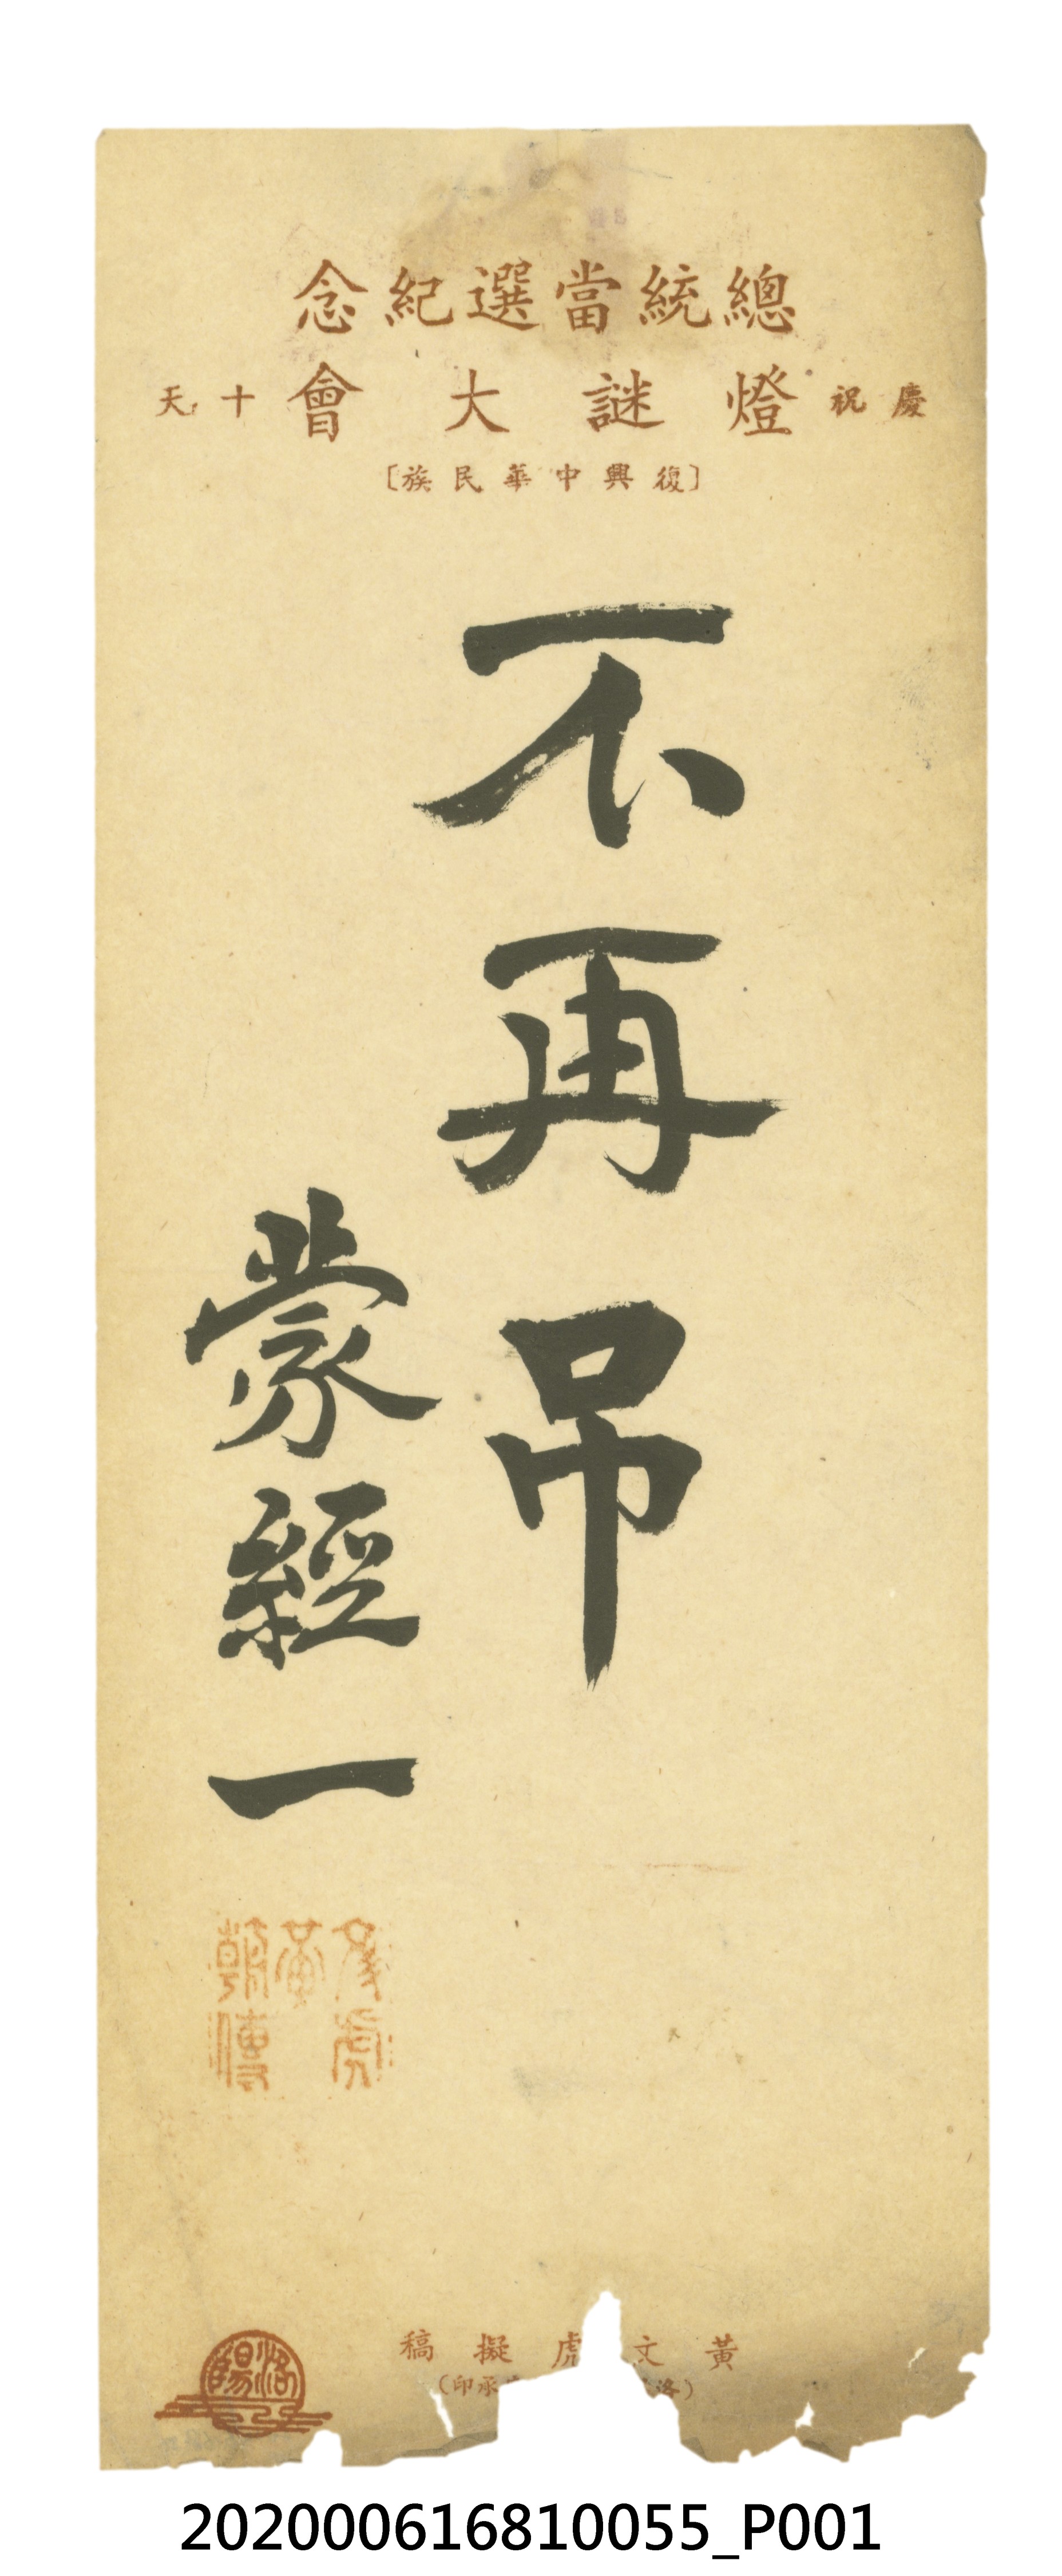 總統當選紀念
慶祝燈謎大會十天
〔復興中華民族〕
不再吊
蒙經一
文虎
黃
朝傳
黃文虎擬稿
(洛承印)
洛陽
202000616810055_P001